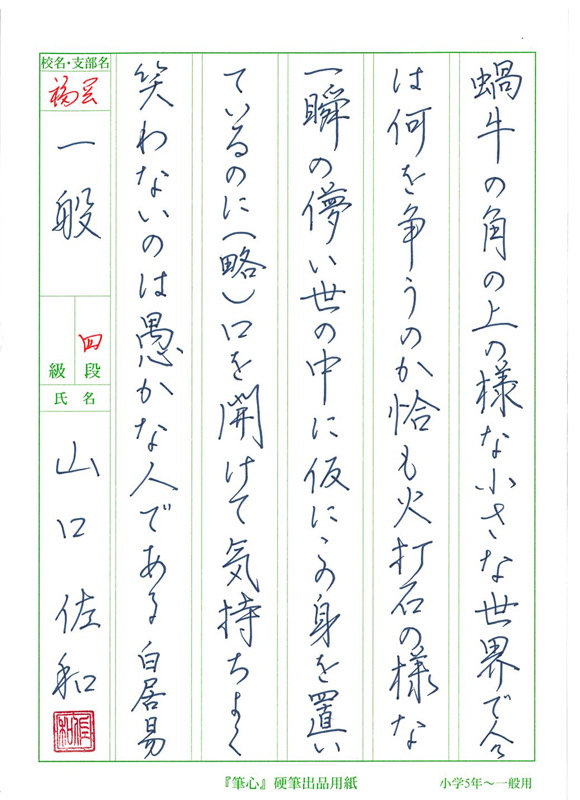 蝸牛の角の上の様な小さな世界で人
は何を争うのか恰も火打石の様な
一瞬の儚い世の中に仮にこの身を置い
ているのに(略)口を開けて気持ちよく
笑わないのは愚かな人である 白居易
校名・支部名
一般
四段
級
氏名
山口佐和
『筆心』硬筆出品用紙
小学5年〜一般用